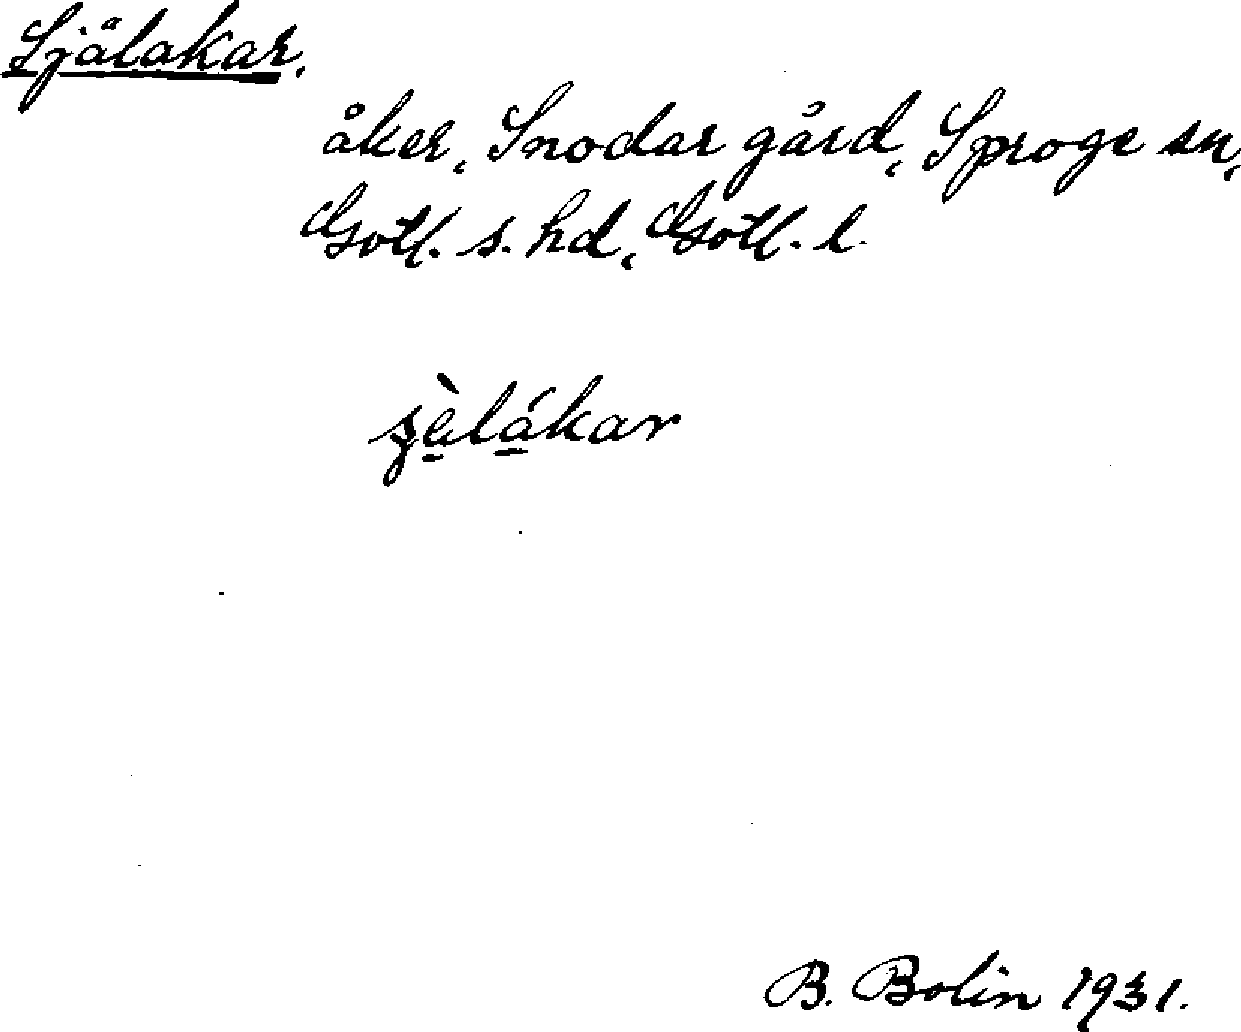 Själakar.
åker, Snodar gård, Sproge sn,
Gotl. s. hd, Gotl. l.
sè̱lá̱kar
B. Bolin 1931.